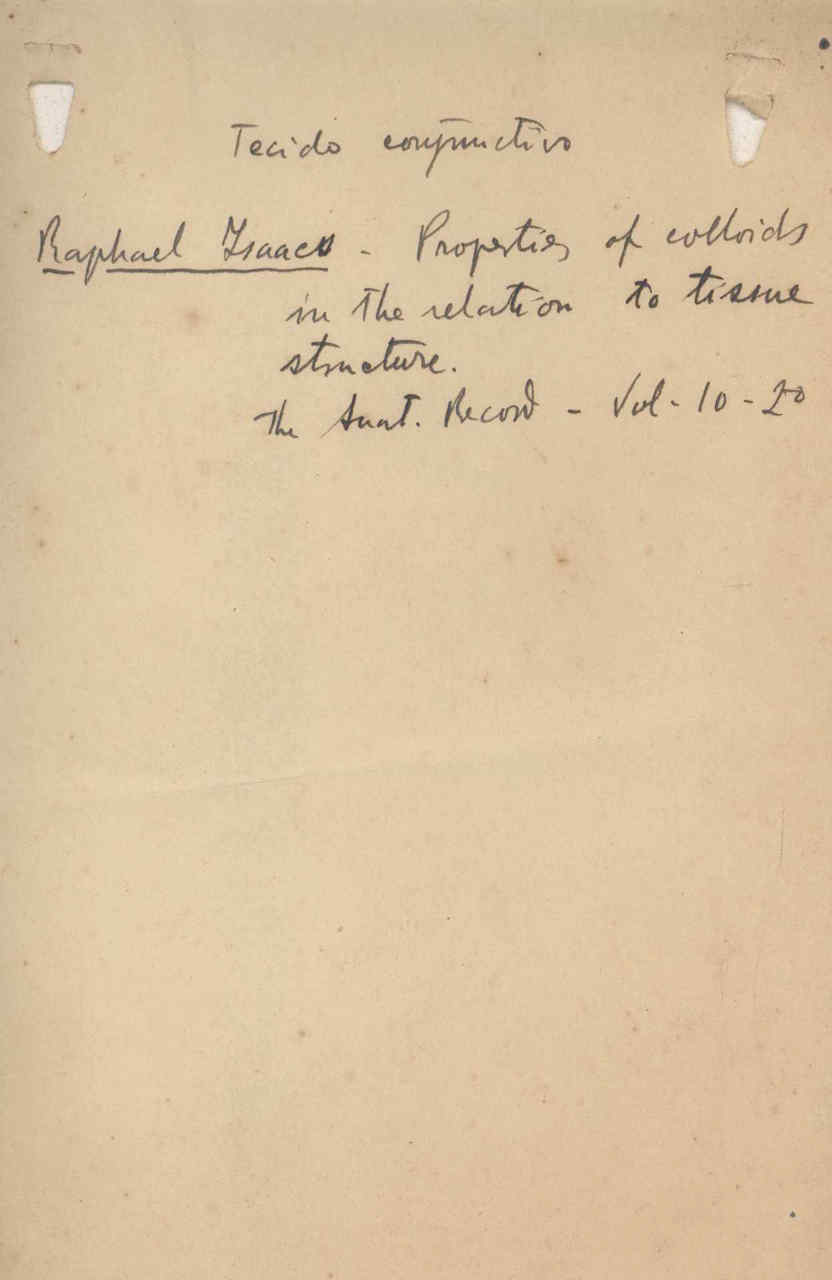 Tecido conjunctivo
Raphael Isaacs - Properties of colloids
in the relation to tissue
structure.
The Anat. Record - Vol - 10 - 20